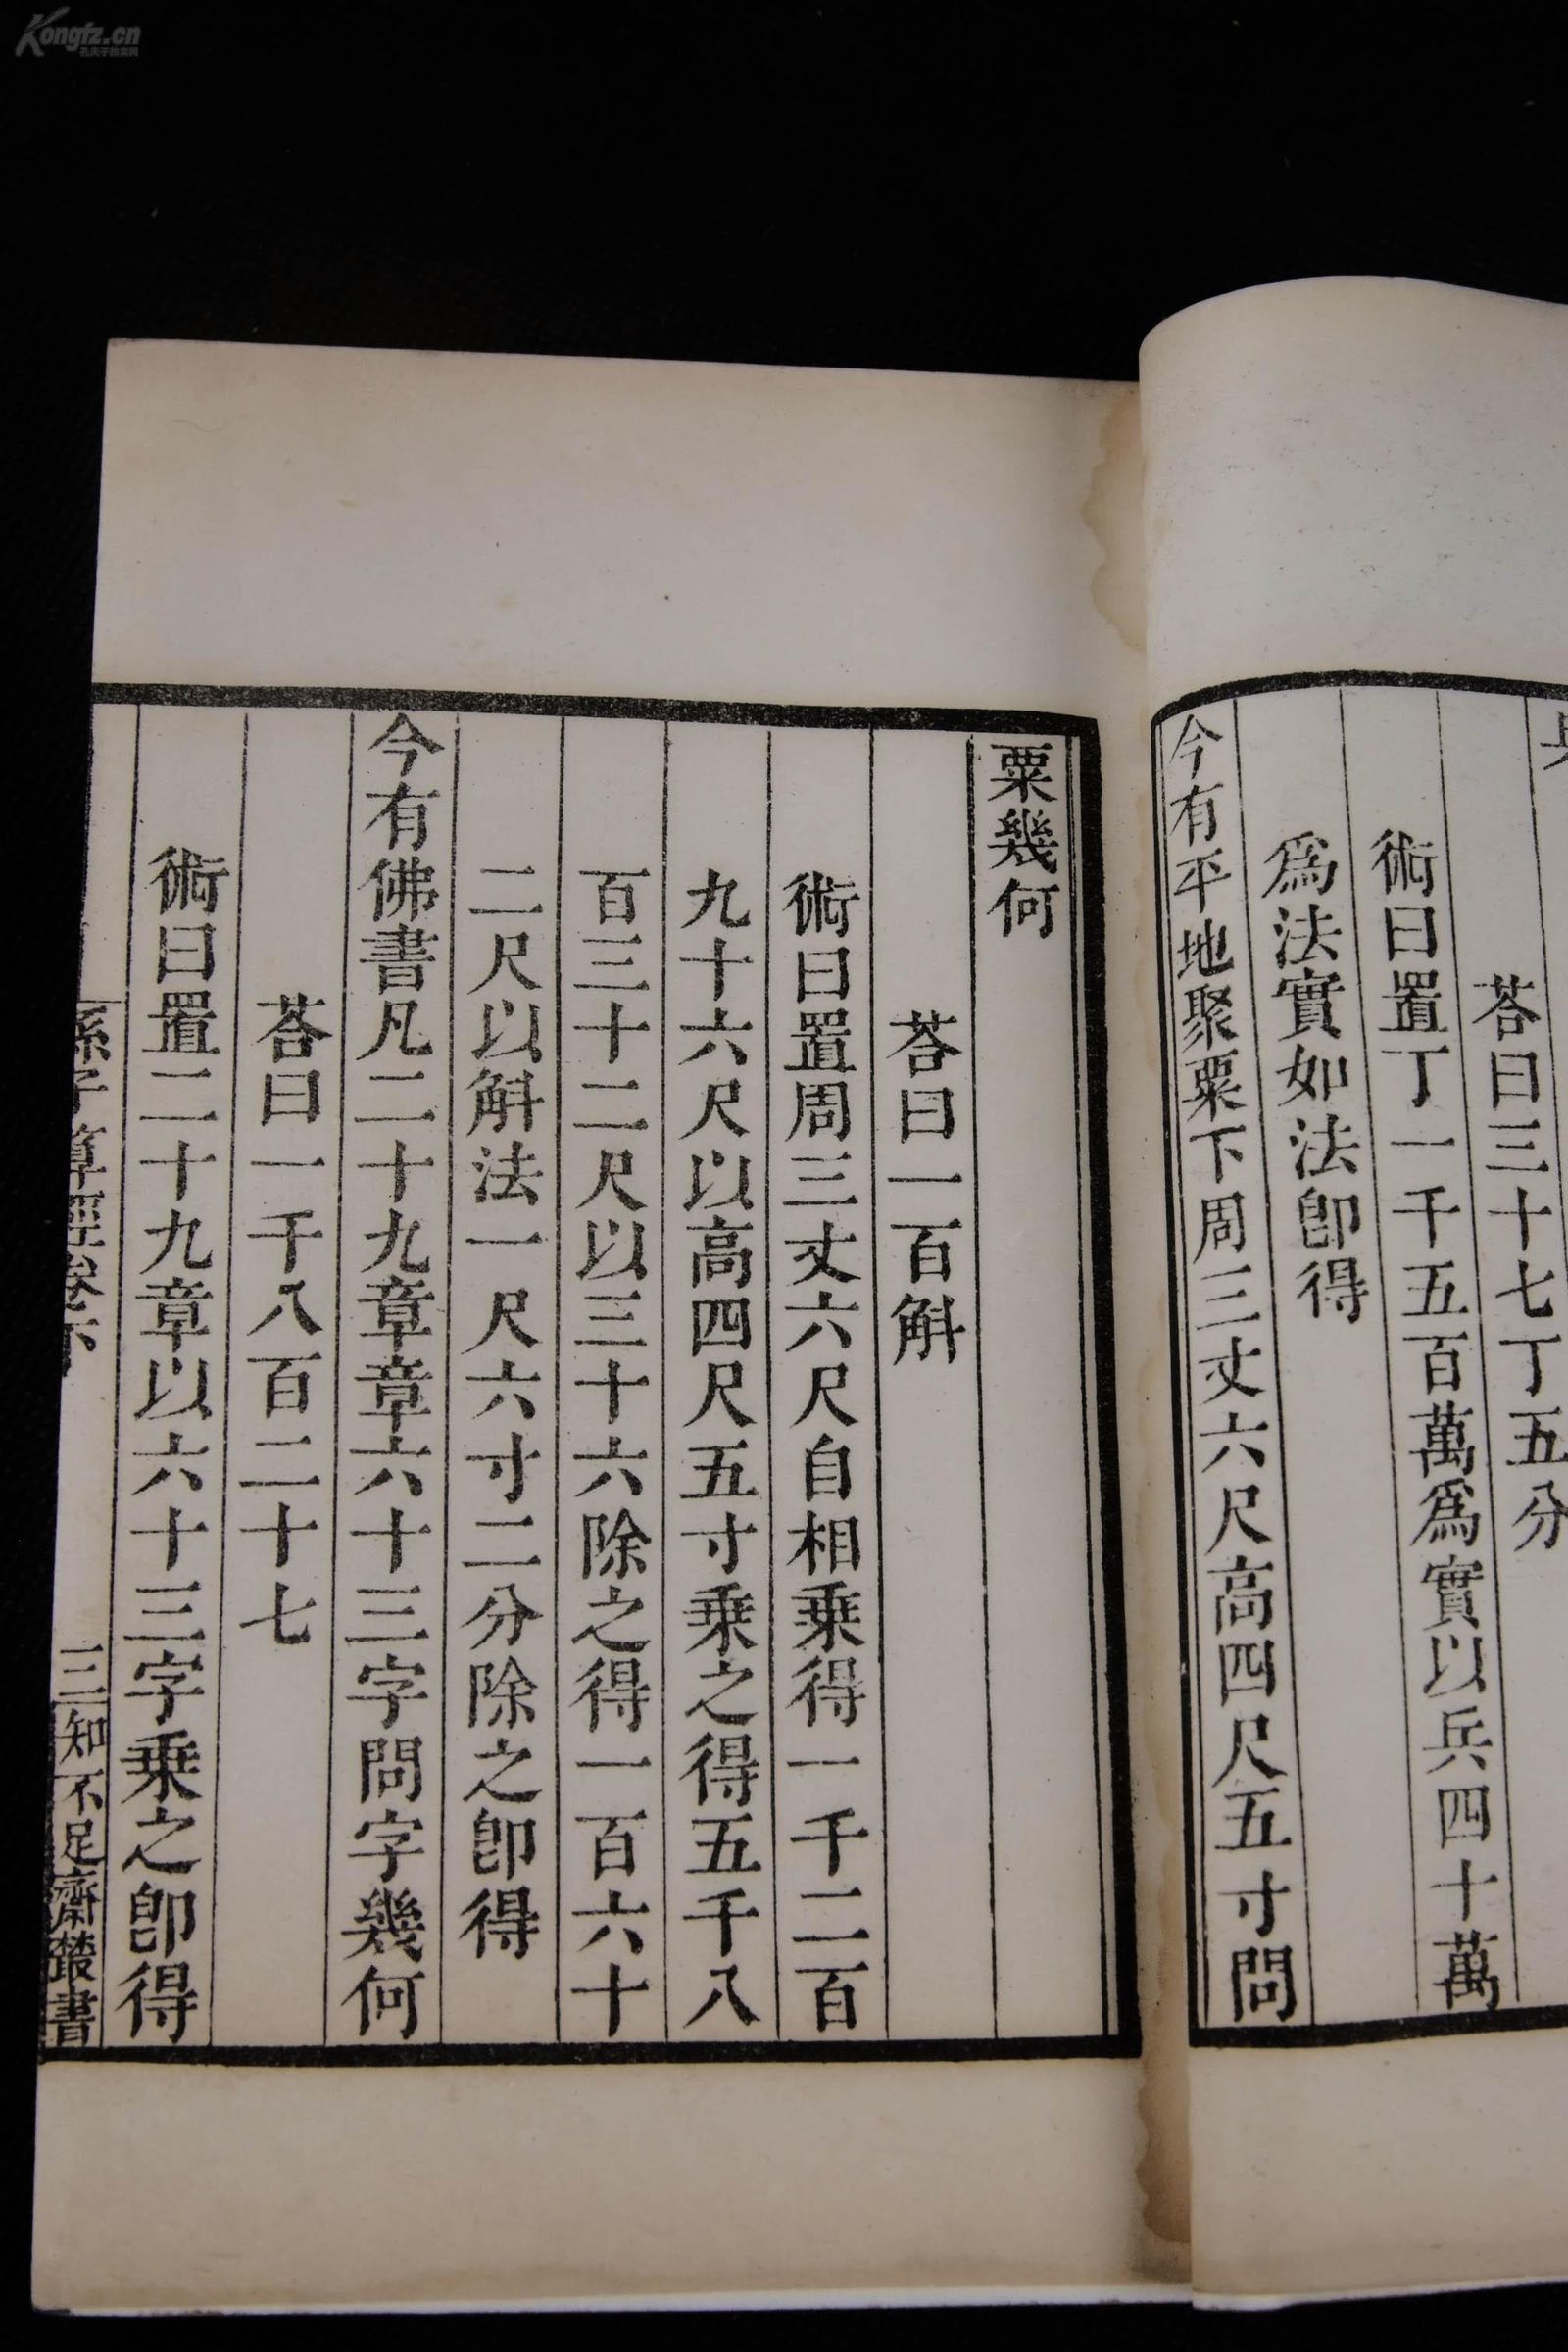 Kongfz.cn
孔夫子拍卖网
荅曰三十七丁五分
術曰置丁一千五百萬爲實以兵四十萬
爲法實如法卽得
今有平地聚粟下周三丈六尺高四尺五寸問
粟幾何
荅曰一百斛
術曰置周三丈六尺自相乗得一千二百
九十六尺以高四尺五寸乗之得五千八
百三十二尺以三十六除之得一百六十
二尺以斛法一尺六寸二分除之卽得
今有佛書凡二十九章章六十三字問字幾何
荅曰一千八百二十七
術曰置二十九章以六十三字乗之卽得
孫子算經卷下 三 知不足齋叢書